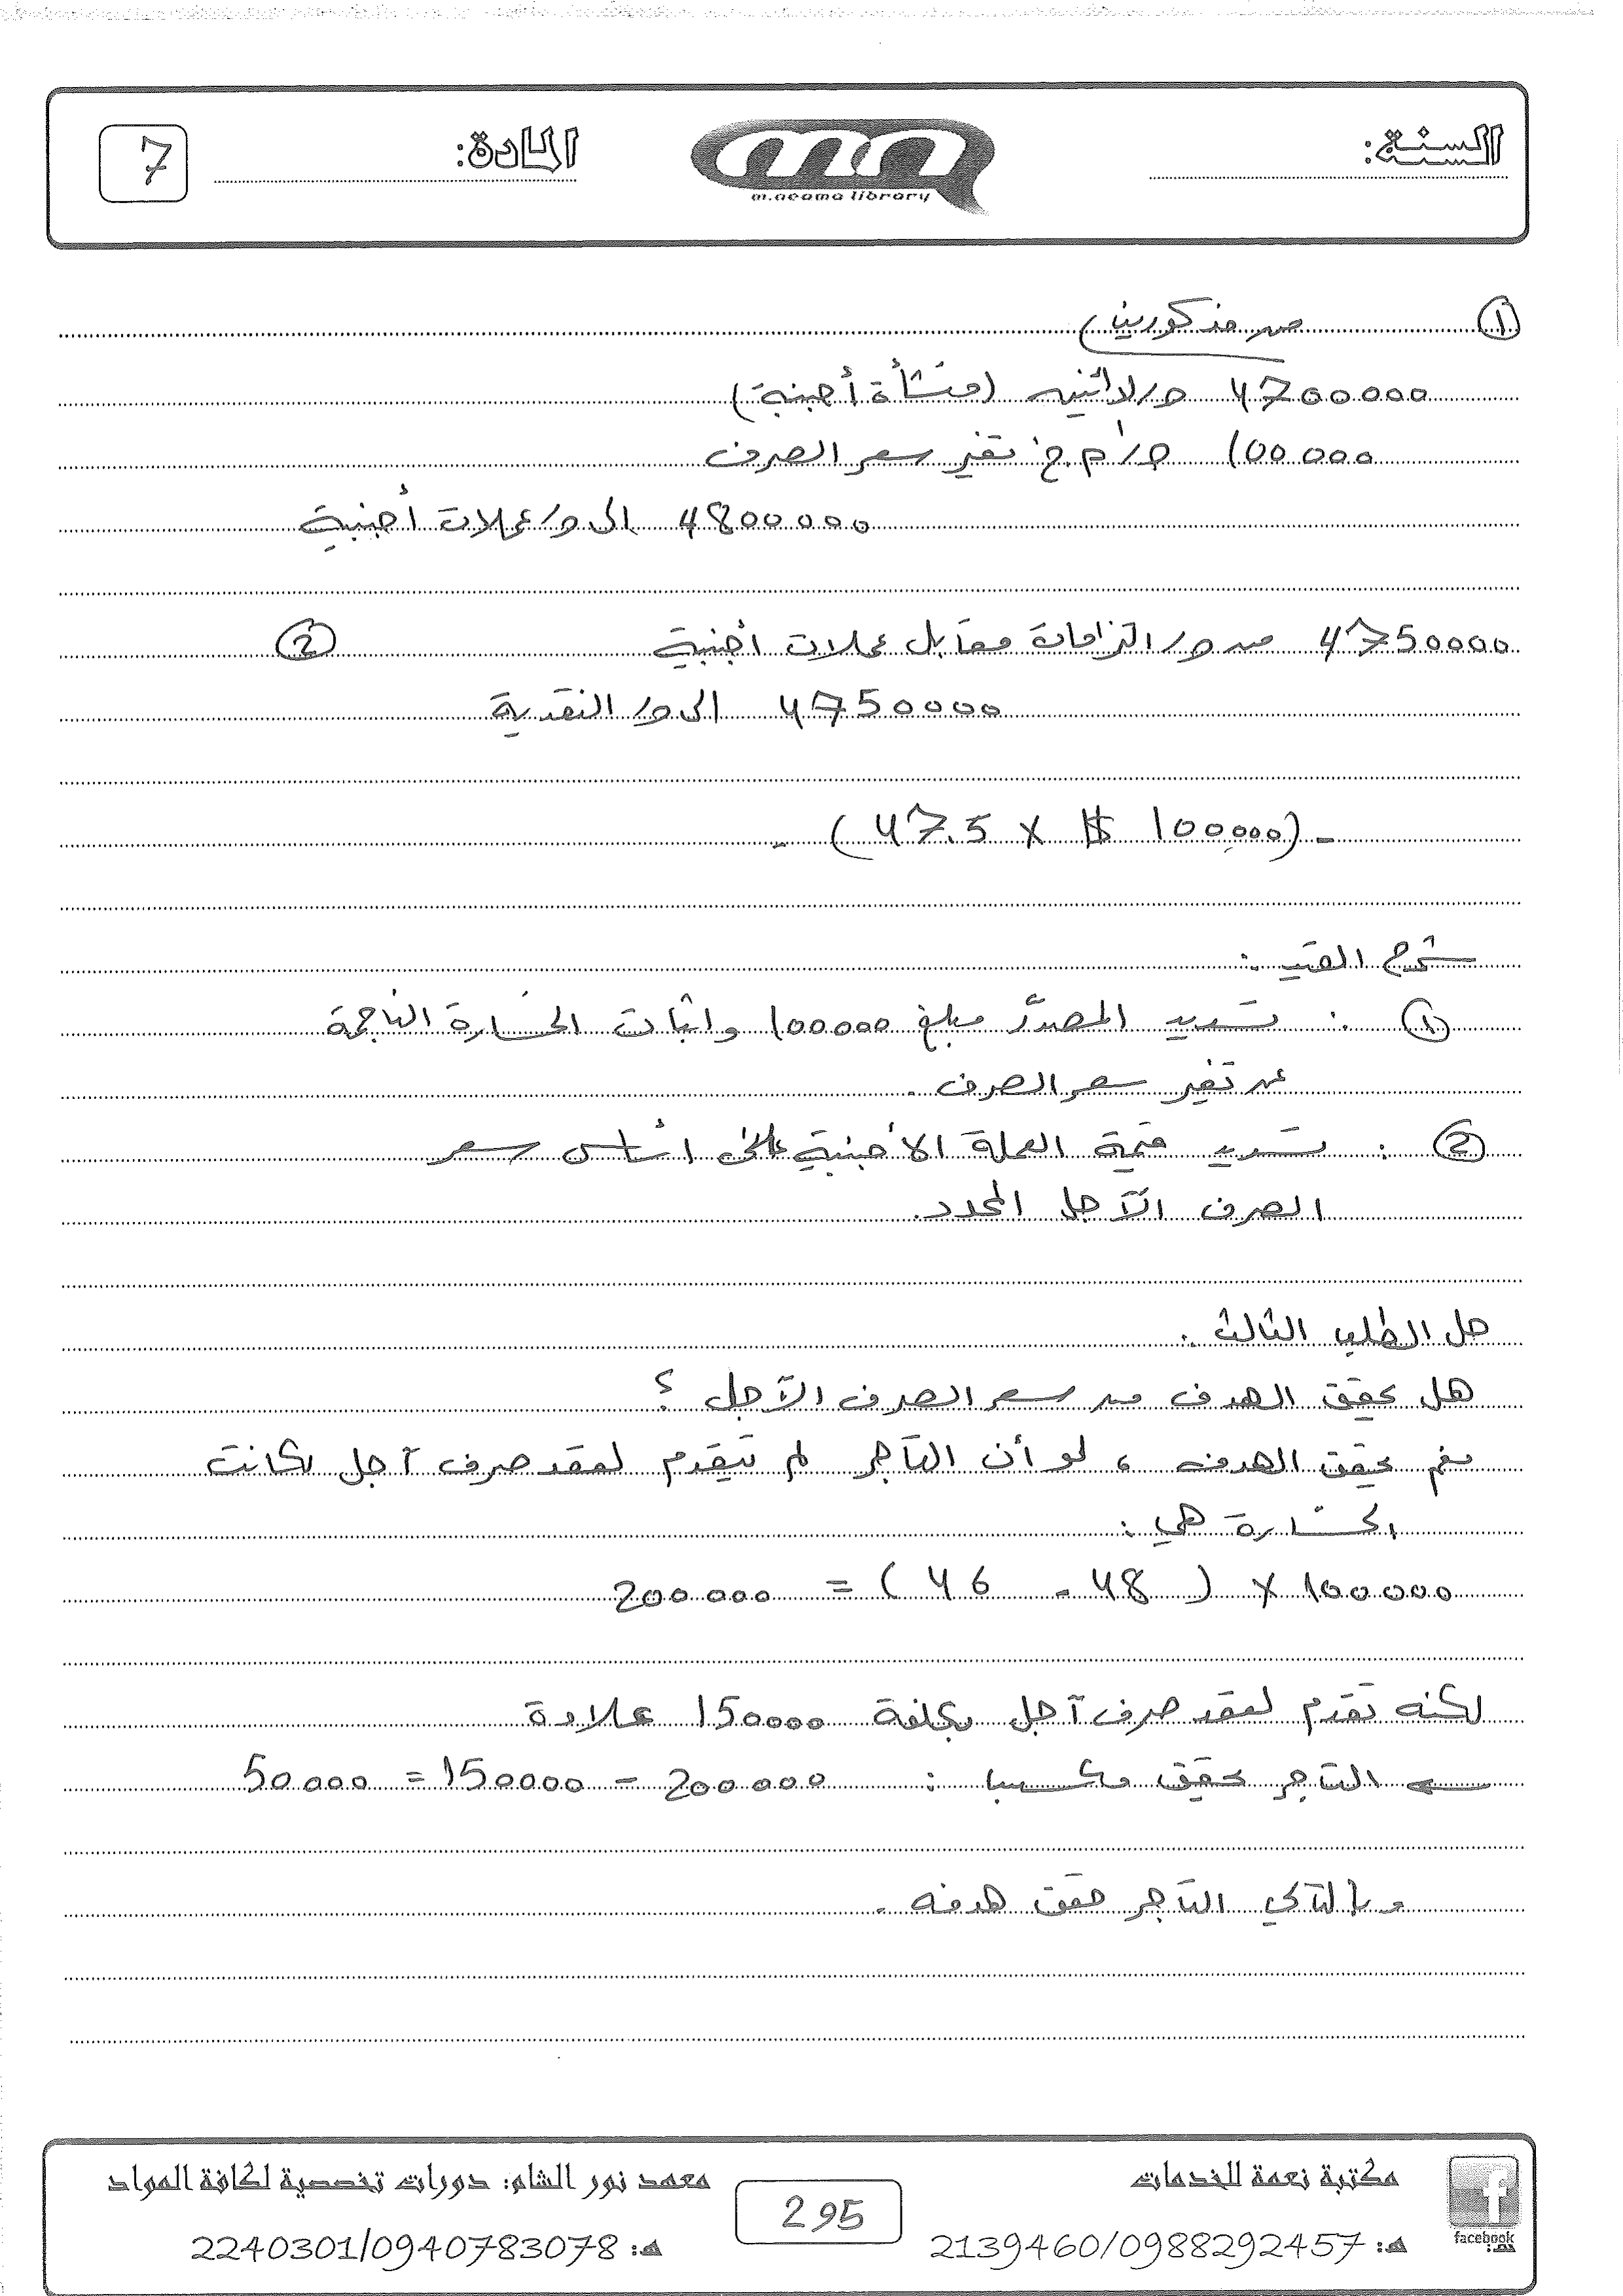 السنة:
m.neama library
المادة:
7
① من مذكورين
4700000 ح/ الدائنين (منشأة أجنبية)
100000 ح/ أ.خ تغير سعر الصرف
4800000 إلى ح/ عملات أجنبية
4750000 من ح/ التزامات مقابل عملات أجنبية ②
4750000 إلى ح/ النقدية
- (100000 $ × 47.5) -
شرح القيد:
① : تسديد المصدر مبلغ 100000 وإثبات الخسارة الناجمة
عن تغير سعر الصرف.
② : تسديد قيمة العملة الأجنبية على أساس سعر
الصرف الآجل المحدد.
حل الطلب الثالث:
هل تحقق الهدف من سعر الصرف الآجل؟
نعم تحقق الهدف، لو أن التاجر لم يتقدم لعقد صرف آجل لكانت
الخسارة هي:
100000 × (48 - 46) = 200000
لكنه تقدم لعقد صرف آجل بكلفة 150000 علاوة
التاجر حقق مكسبا : 200000 - 150000 = 50000
وبالتالي التاجر حقق هدفه.
facebook
مكتبة نعمة للخدمات
هـ: 2139460/0988292457
295
معهد نور الشام: دورات تخصصية لكافة المواد
هـ: 2240301/0940783078